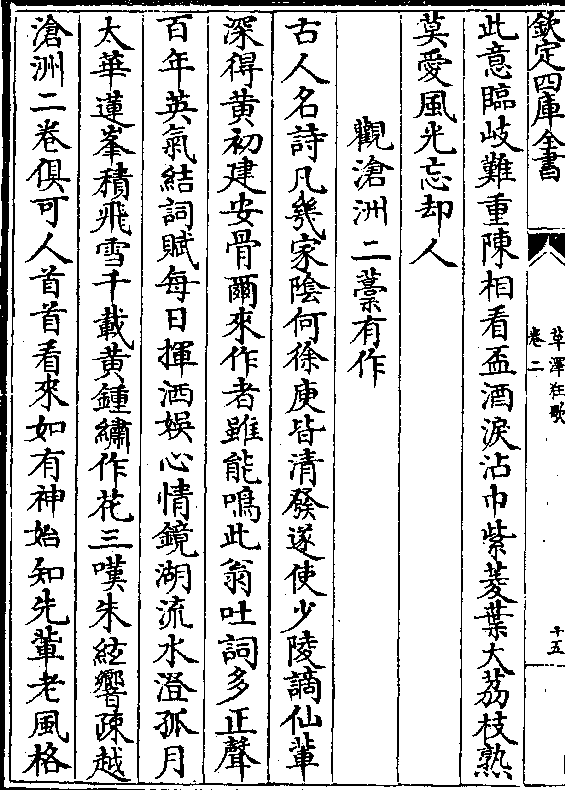 欽定四庫全書
草澤狂歌
卷二
十五
此意臨岐難重陳相看盃酒淚沾巾紫菱葉大荔枝熟
莫愛風光忘却人
觀滄洲二藁有作
古人名詩凡幾家陰何徐庾皆清發遂使少陵謫仙輩
深得黄初建安骨爾來作者雖能鳴此翁吐詞多正聲
百年英氣結詞賦每日揮洒娱心情鏡湖流水澄孤月
太華蓮峯積飛雪千載黄鍾繡作花三嘆朱絃響疎越
滄洲二卷俱可人首首看來如有神始知先輩老風格